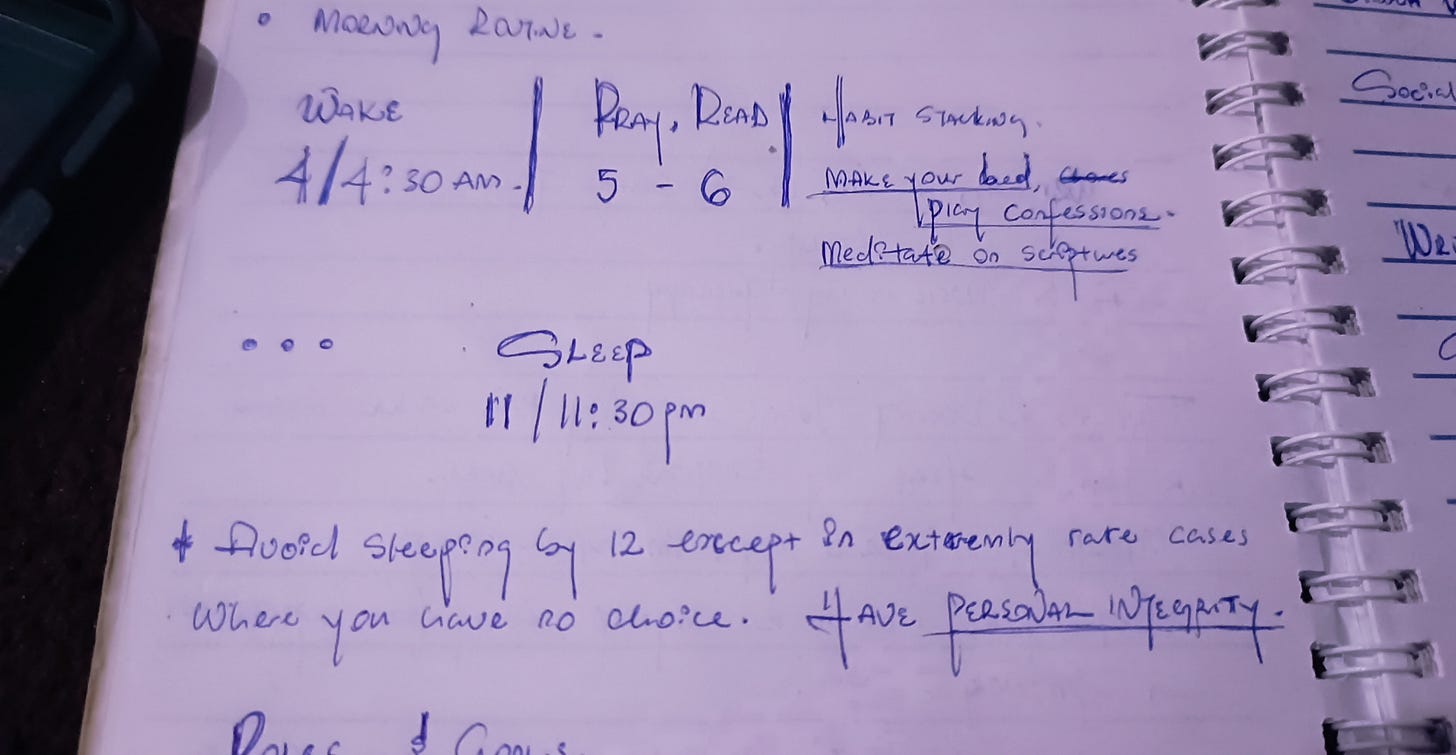 • Morning Routine -
WAKE | PRAY, READ | HABIT STACKING.
4/4:30 AM. | 5 - 6 | MAKE your bed,
play confessions.
Meditate on scriptures
• • • SLEEP
11/11:30pm
* Avoid sleeping by 12 except in extremely rare cases
where you have no choice. HAVE PERSONAL INTEGRITY.
Social